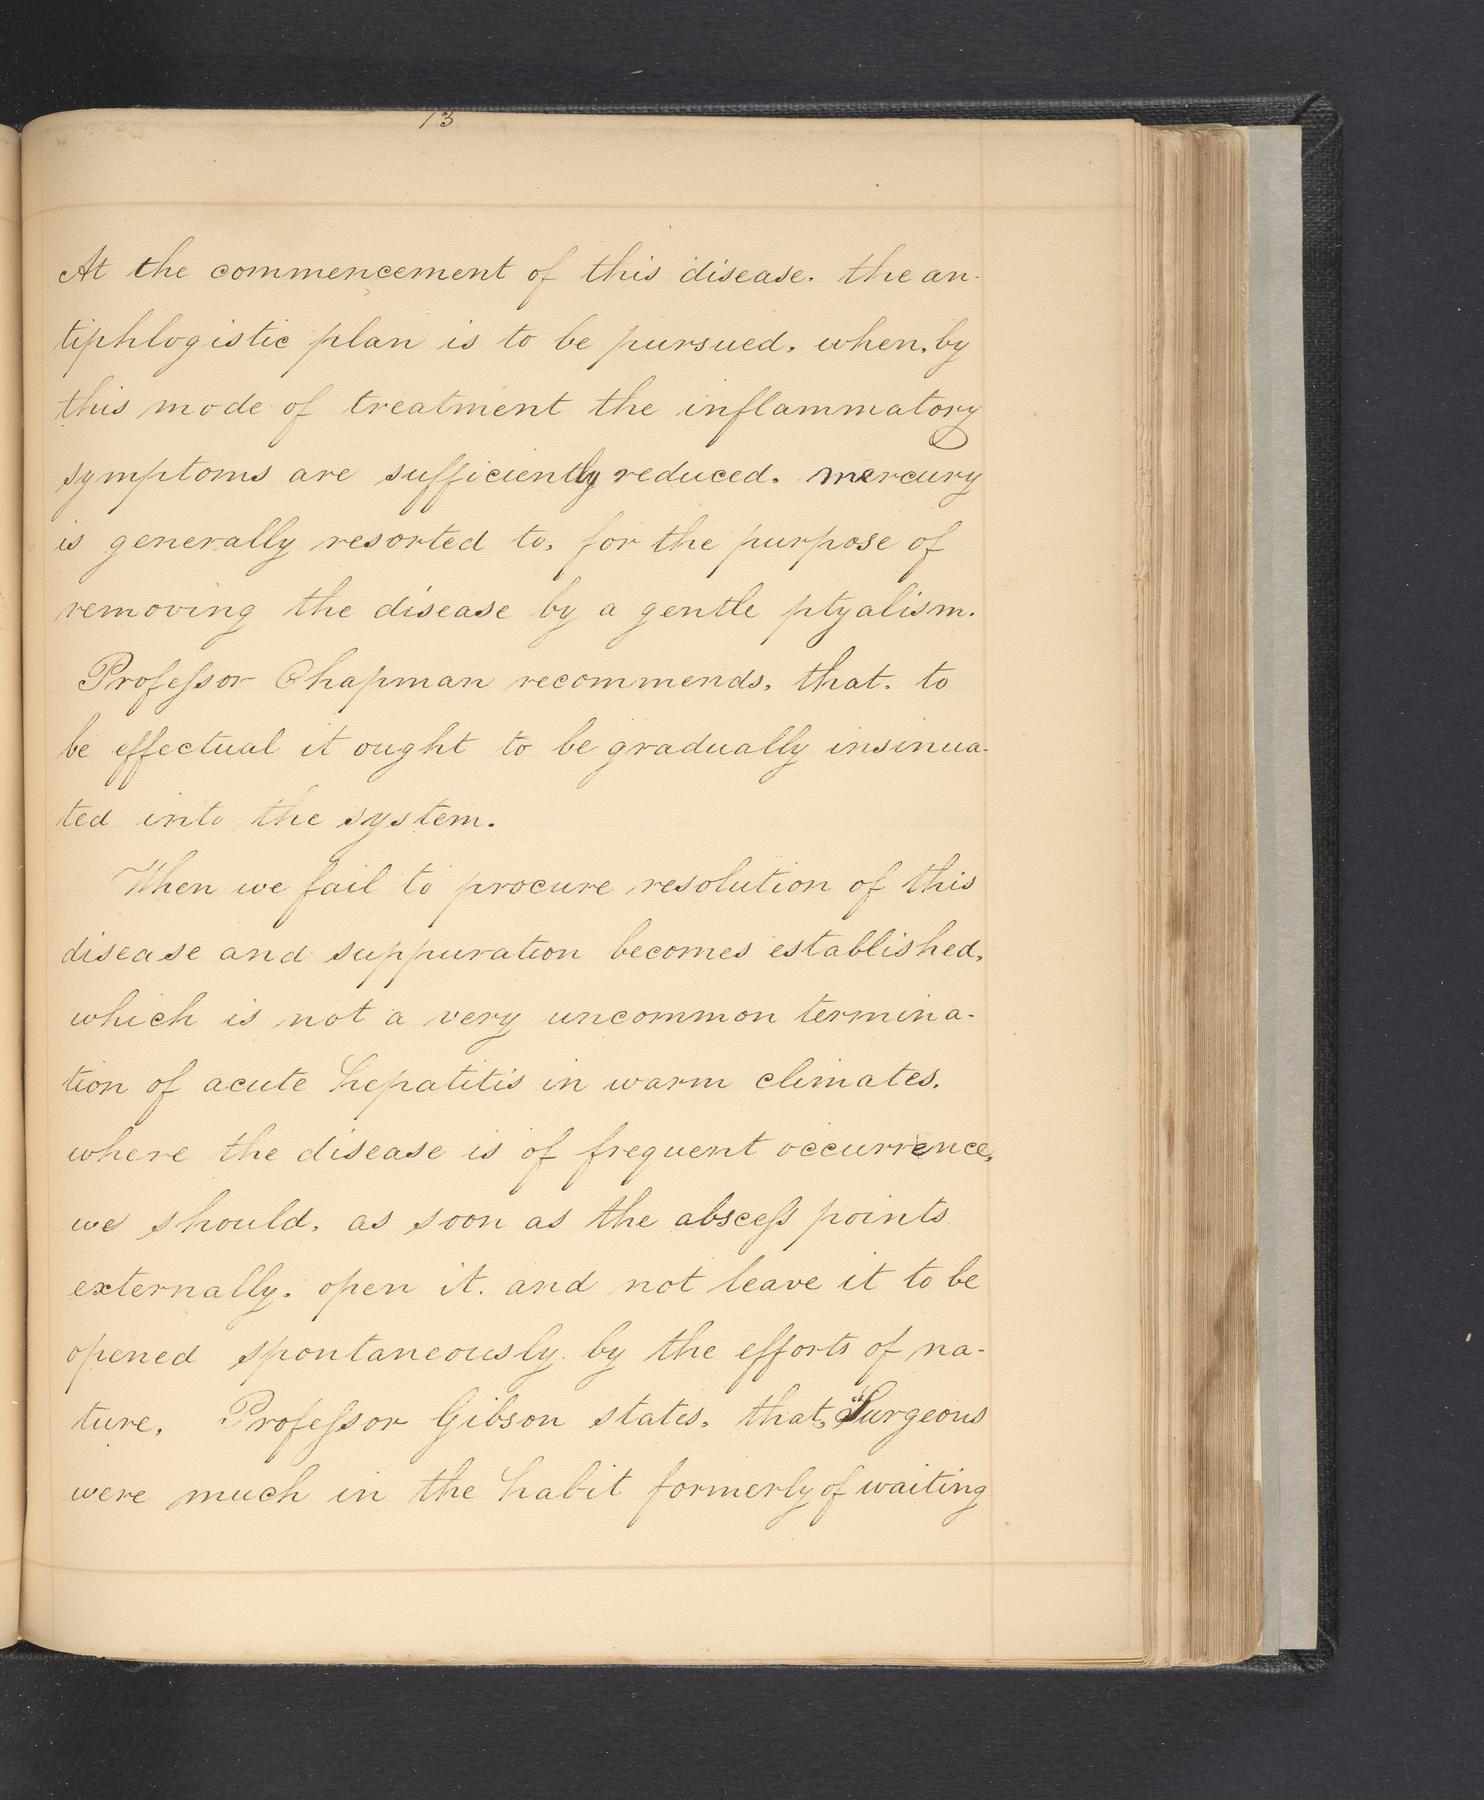 13
At the commencement of this disease. the an-
tiphlogistic plan is to be pursued, when, by
this mode of treatment the inflammatory
symptoms are sufficiently reduced. mercury
is generally resorted to, for the purpose of
removing the disease by a gentle ptyalism.
Professor Chapman recommends, that, to
be effectual it ought to be gradually insinua-
ted into the system.
When we fail to procure resolution of this
disease and suppuration becomes established,
which is not a very uncommon termina-
tion of acute hepatitis in warm climates,
where the disease is of frequent occurrence,
we should, as soon as the abscess points
externally. open it. and not leave it to be
opened spontaneously by the efforts of na-
ture. Professor Gibson states, that, "Surgeons
were much in the habit formerly of waiting